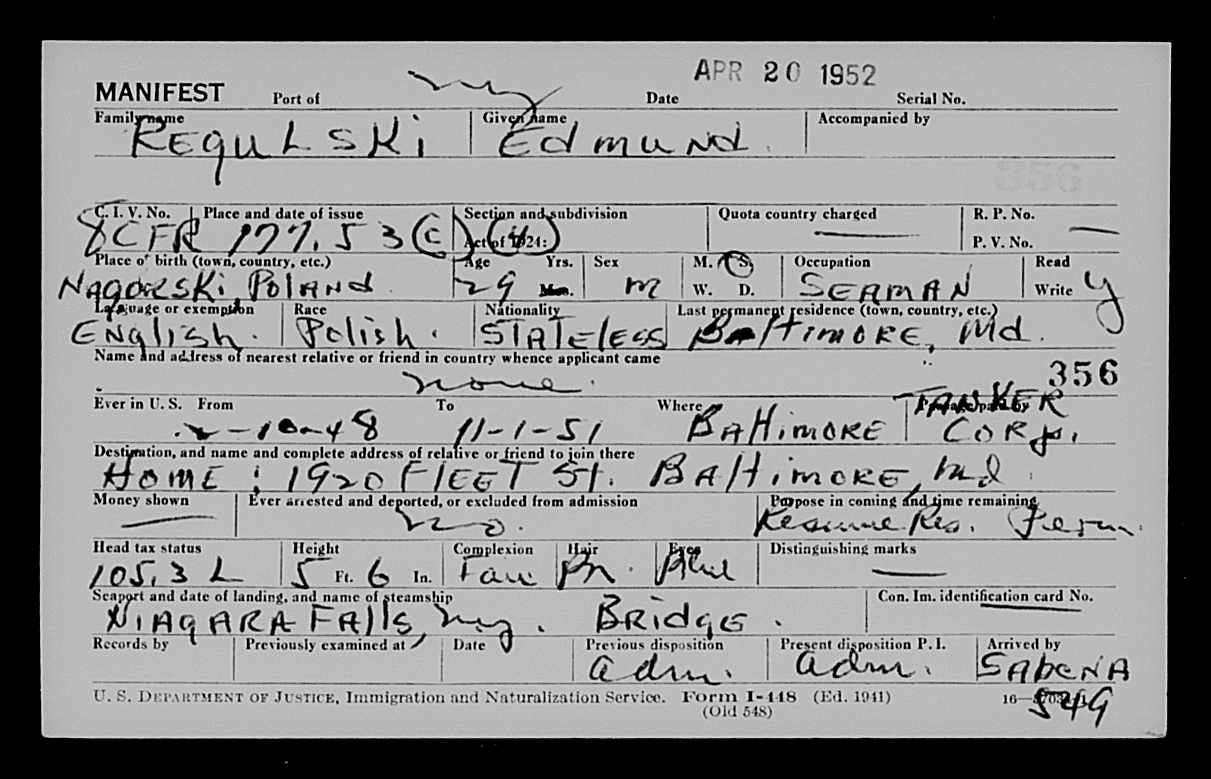 APR 20 1952
MANIFEST Port of NY Date Serial No.
Family name Given name Accompanied by
REGULSKi Edmund.
C. I. V. No. Place and date of issue Section and subdivision Quota country charged R. P. No.
8CFR 177.53(c)(4) Act of 1924: — P. V. No. —
Place of birth (town, country, etc.) Age Yrs. Sex M. S. Occupation Read
NAgORSKi POLAND. 29 Mos. m W. D. SEAMAN Write y
Language or exemption Race Nationality Last permanent residence (town, country, etc.)
ENglish. Polish. STATElESS BAltimORE, Md.
Name and address of nearest relative or friend in country whence applicant came
none. 356
Ever in U. S. From To Where Passage paid by TANKER
2-10-48 11-1-51 BAltimORE CORp.
Destination, and name and complete address of relative or friend to join there
HOME: 1920 FlEET St. BAltimORE, Md.
Money shown Ever arrested and deported, or excluded from admission Purpose in coming and time remaining
— no. Resume Res. Perm.
Head tax status Height Complexion Hair Eyes Distinguishing marks
105.3 L 5 Ft. 6 In. Fair Br. Blue —
Seaport and date of landing, and name of steamship Con. Im. identification card No.
NiAgARA FAlls, ny. BRidgE.
Records by Previously examined at Date Previous disposition Present disposition P. I. Arrived by
adm. adm. SAbENA
U. S. DEPARTMENT OF JUSTICE, Immigration and Naturalization Service. Form I-448 (Ed. 1941) 16— 549
(Old 548)